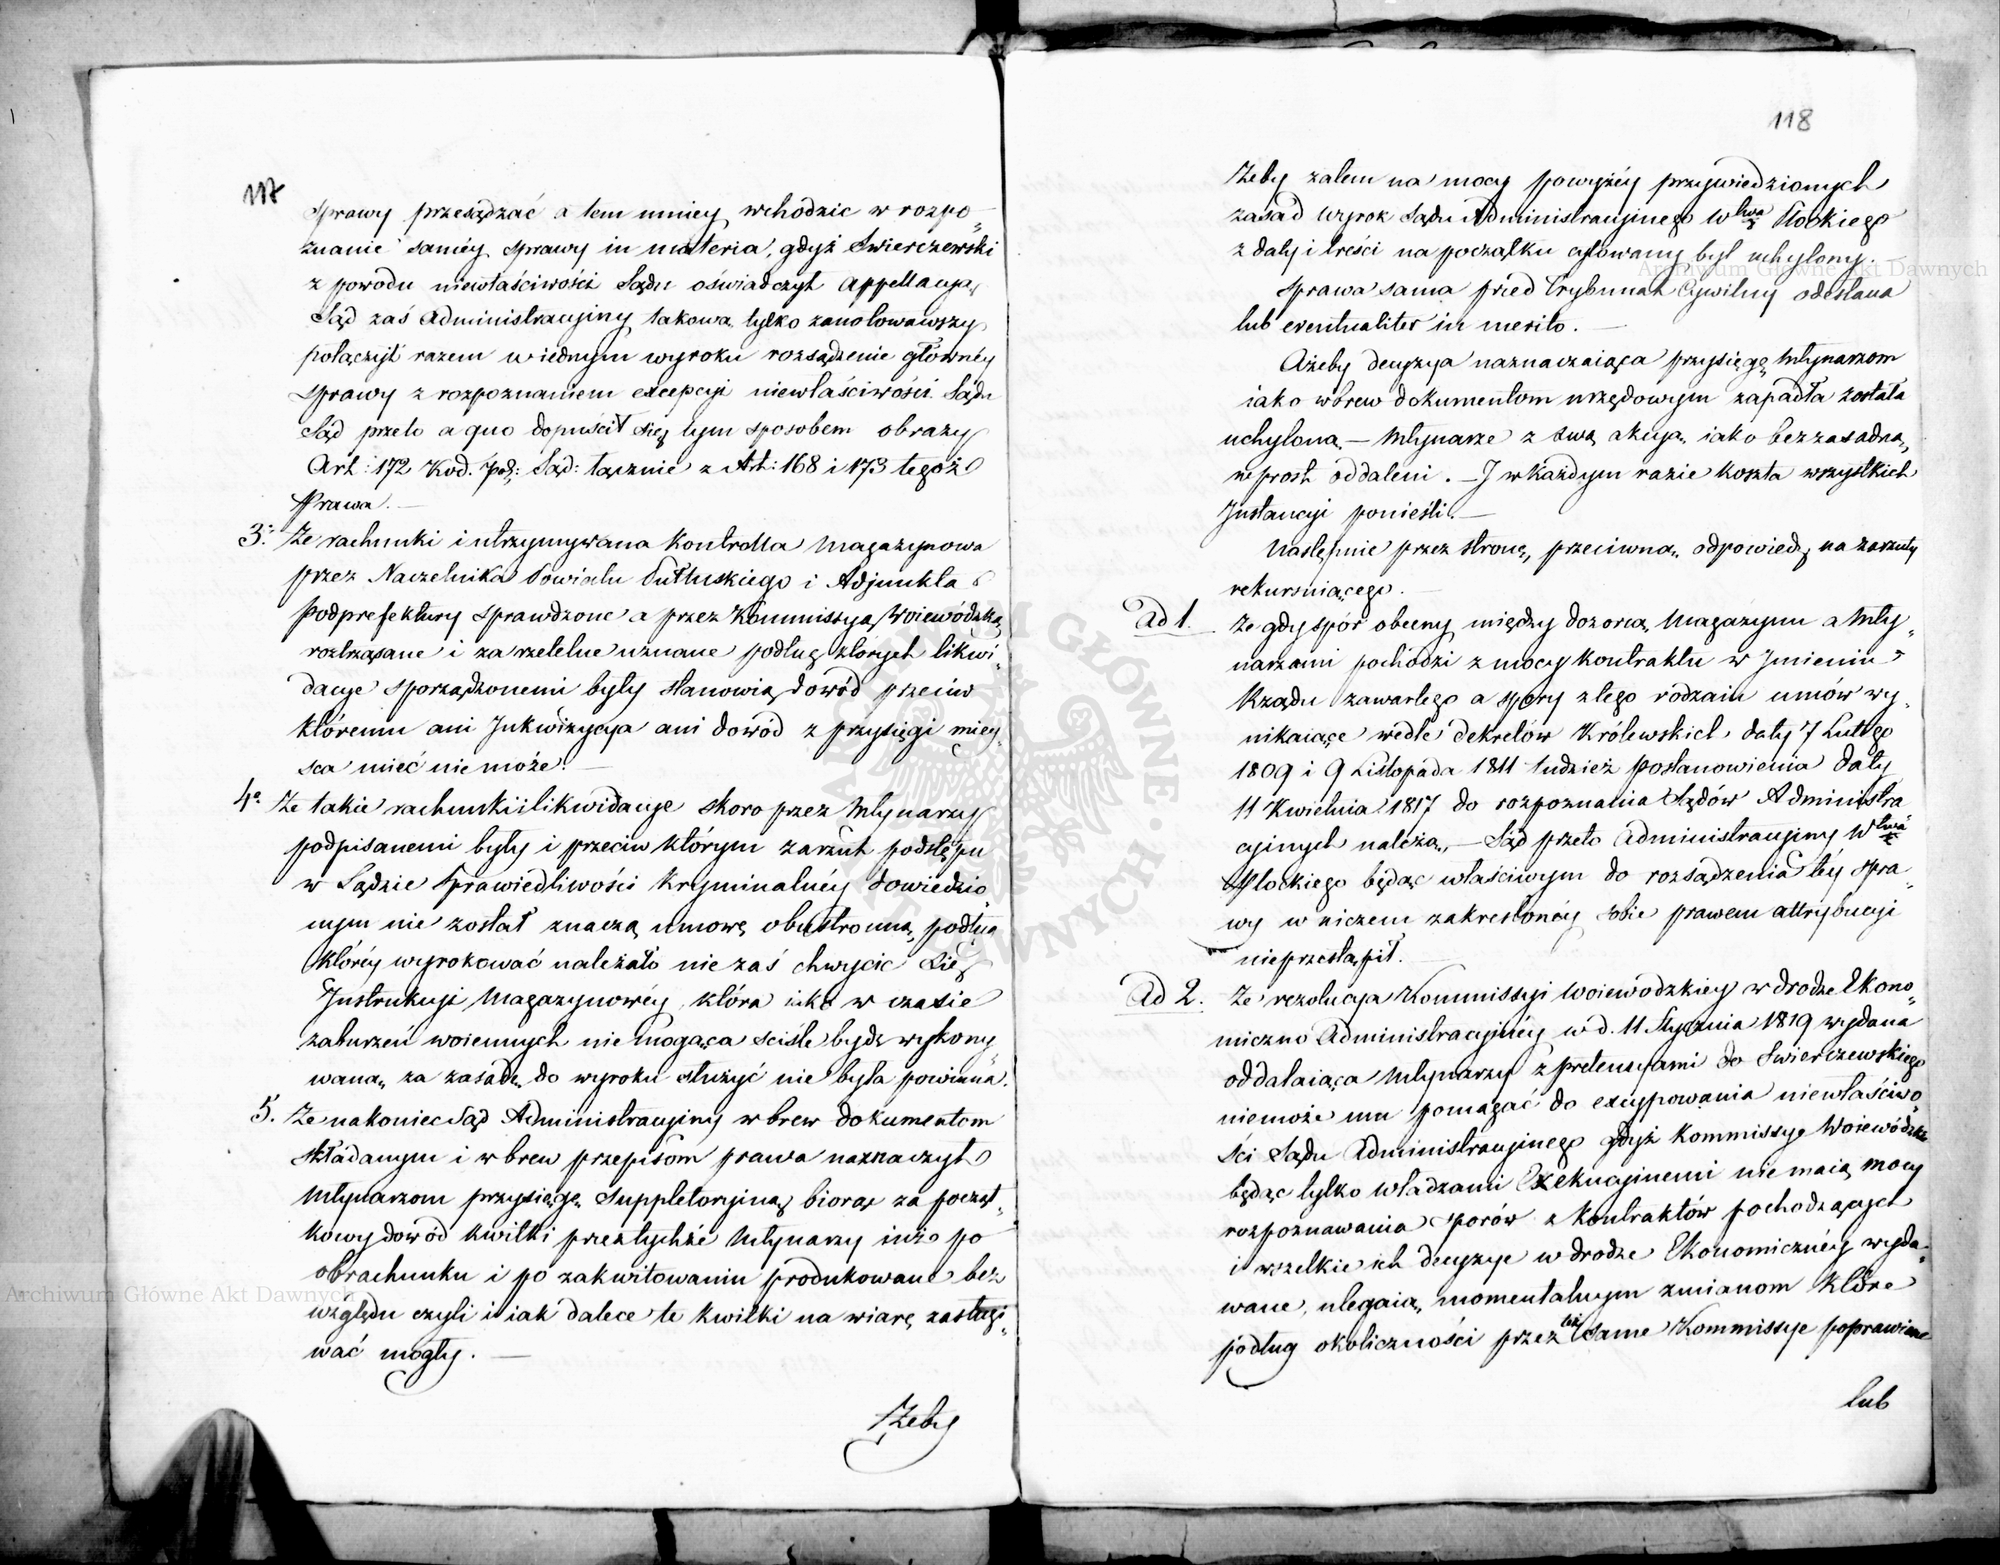 117
sprawy przesądzać a tem mniey wchodzic w rozpo„
znanie saméy sprawy in materia, gdyż Swierczewski
z powodu niewłaściwości Sądu oświadczył appellacyą,
Sąd zaś Administracyiny takową tylko zanotowawszy
połączył razem w iednym wyroku rozsądzenie główney
sprawy z rozpoznaniem excepcyi niewłaściwości Sądu
Sąd przeto a quo dopuścił się tym sposobem obrazy
Art: 172 Kod. Pos: Sąd: łącznie z Art: 168 i 173 tegoż
Prawa. —
3: Że rachunki i utrzymywana Kontrolla Magazynowa
przez Naczelnika Powiatu Pułtuskiego i Adjunkta
Podprefektury sprawdzone a przez Kommissyą Woiewódzką
roztrząsane i za rzetelne uznane podług których likwi„
dacye sporządzonemi były stanowią dowód przeciw
któremu ani Inkwizycya ani dowód z przysięgi miey„
sca mieć nie może. —
4. Że takie rachunki i likwidacye skoro przez Młynarzy
podpisanemi były i przeciw którym zarzut podstępu
w Sądzie Sprawiedliwości Kryminalnéy dowiedzio„
nym nie został znaczą umowę obustronną, podług
któréy wyrokować należało nie zaś chwycic się
Instrukcyi Magazynowéy, która iako w czasie
zaburzeń woiennych nie mogąca ściśle bydź wykony„
waną, za zasadę do wyroku służyć nie była powinna.
5. Że nakoniec Sąd Administracyiny wbrew dokumentom
składanym i wbrew przepisom prawa naznaczył
Młynarzom przysięgę suppletoryiną biorąc za począt„
kowy dowód kwitki przez tychże Młynarzy iuż po
obrachunku i po zakwitowaniu produkowane bez
względu czyli i iak dalece te kwitki na wiarę zasługi„
wać mogły. —
Żeby
118
Żeby zatem na mocy powyżéy przywiedzionych
zasad wyrok Sądu Administracyinego Wtwa Płockiego
z daty i treści na początku cytowany był uchylony.
Sprawa sama przed Trybunał Cywilny odesłana
lub eventualiter in merito. —
Ażeby decyzya naznaczaiąca przysięgę Młynarzom
iako wbrew dokumentom urzędowym zapadła została
uchyloną — Młynarze z swą akcyą iako bezzasadną„
wprost oddaleni. — I w każdym razie koszta wszystkich
Instancyi ponieśli. —
Następnie przez stronę przeciwną odpowiedź na zarzuty
rekursuiącego. —
Ad 1. Że gdy spór obecny między dozorcą Magazynu a Mły„
narzami pochodzi z mocy kontraktu w Imieniu
Rządu zawartego a spory z tego rodzaiu umów wy„
nikaiące wedle dekretów Królewskich daty 7 Lutego
1809 i 9 Listopada 1811 tudzież postanowienia daty
11 Kwietnia 1817 do rozpoznania Sądów Administra
cyinych należą, — Sąd przeto Administracyiny Wtwa
Płockiego będąc właściwym do rozsądzenia téy spra„
wy w niczem zakreślonéy sobie prawem attrybucyi
nieprzestąpił. —
Ad 2. Że rezolucya Kommissyi Woiewodzkiey w drodze Ekono„
miczno Administracyinéy w d. 11 Stycznia 1819 wydana
oddalaiąca Młynarzy z pretensyami do Swierczewskiego
niemoże mu pomagać do excypowania niewłaściwo„
ści Sądu Administracyinego gdyż Kommissye Woiewódzkie
będąc tylko władzami Exekucyinemi nie maią mocy
rozpoznawania sporów z Kontraktów pochodzących
i wszelkie ich decyzye w drodze Ekonomicznéy wyda„
wane, ulegaią momentalnym zmianom które
podług okoliczności przez też same Kommissye poprawione
lub
ARCHIWUM GŁÓWNE AKT DAWNYCH
Archiwum Główne Akt Dawnych
Archiwum Główne Akt Dawnych